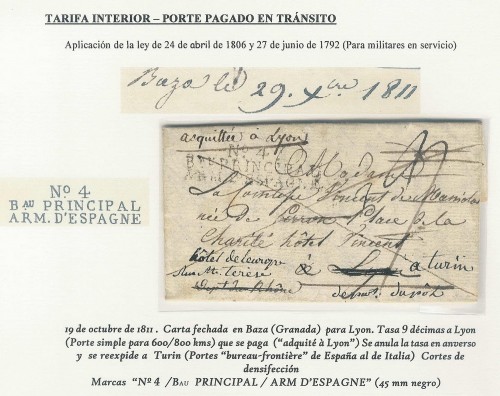 TARIFA INTERIOR – PORTE PAGADO EN TRÁNSITO
Aplicación de la ley de 24 de abril de 1806 y 27 de junio de 1792 (Para militares en servicio)
Baza le 29. Xbre 1811
acquittée à Lyon
Nº 4.
BAU PRINCIPAL
ARM. D'ESPAGNE
A Madame
la Comtesse Vincent de
née de Place de la
Charité hôtel Vincent
hôtel de l'europe
à Lyon a turin
rue Ste Terese
Dept du Rhône
Nº 4
BAU PRINCIPAL
ARM. D'ESPAGNE
19 de octubre de 1811. Carta fechada en Baza (Granada) para Lyon. Tasa 9 décimas a Lyon
(Porte simple para 600/800 kms) que se paga ("adquité à Lyon") Se anula la tasa en anverso
y se reexpide a Turin (Portes "bureau-frontière" de España al de Italia) Cortes de
densifección
Marcas "Nº 4 /BAU PRINCIPAL / ARM D'ESPAGNE" (45 mm negro)